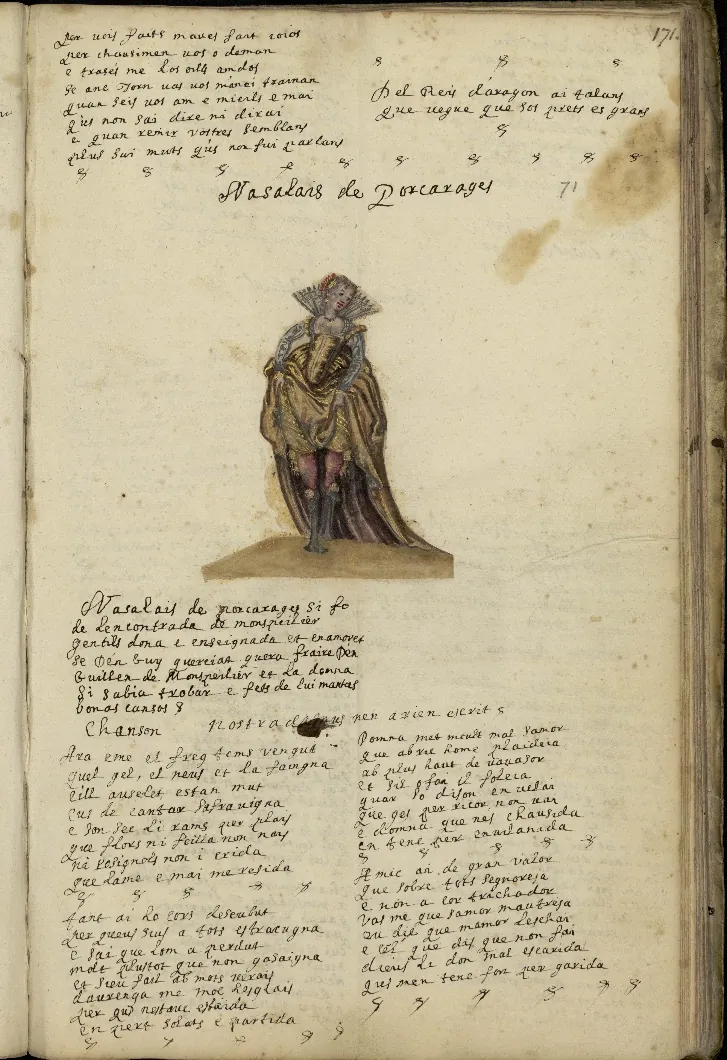 171.
per vois faits maves fait ioios
per chausimen vos o deman
e trases me los oills amdos
se anc torn vas vos manei trainan
quan seis vos am e miells e mai
quis non sai dire ni dirai
e quan remir vostres semblans
plus sui muts quis non fui parlans
Del Reis daragon ai talans
que vegue que sos prets es grans
Nasalais de Porcarages
71
Nasalais de porcarages si fo
de lencontrada de monspeilier
gentils dona e enseignada et enamoret
se Den Guy guereiat quera fraire Den
Guillen de Monspeilier et la donna
si sabia trobar e fess de lui mantas
bonas cansos
Chanson nostradamus nen a rien escrit
Ara eme el freg tems vengut
quel gel, el neus et la faingna
eill auselet estan mut
cus de cantar safravigna
e son sec li rams per plais
que flors ni foilla non nais
ni rosignols non i crida
que lame e mai me resida
tant ai lo cors deseubut
per queus suis a tots estraeugna
e sai que lom a perdut
molt plustot que non gasaigna
et sieu fail ab mots verais
daurenga me moc lesglais
per qu nestauc esbaida
en pert solats e partida
Domna met mcult mal samor
que ab ric home plaideia
ab plus haut de vavasor
et sil o fai il foleia
quar so dison en velai
que ges per ricor non vai
e domna que nes chausida
en tenc per envilanida
Amic ai de gran valor
que sobre tots segnoreia
e non a cor trichador
vas me que samor mautreia
eu dic que mamor leschai
e cel que dis que non fai
dieus li don mal escarida
qus men tenc fon per garida